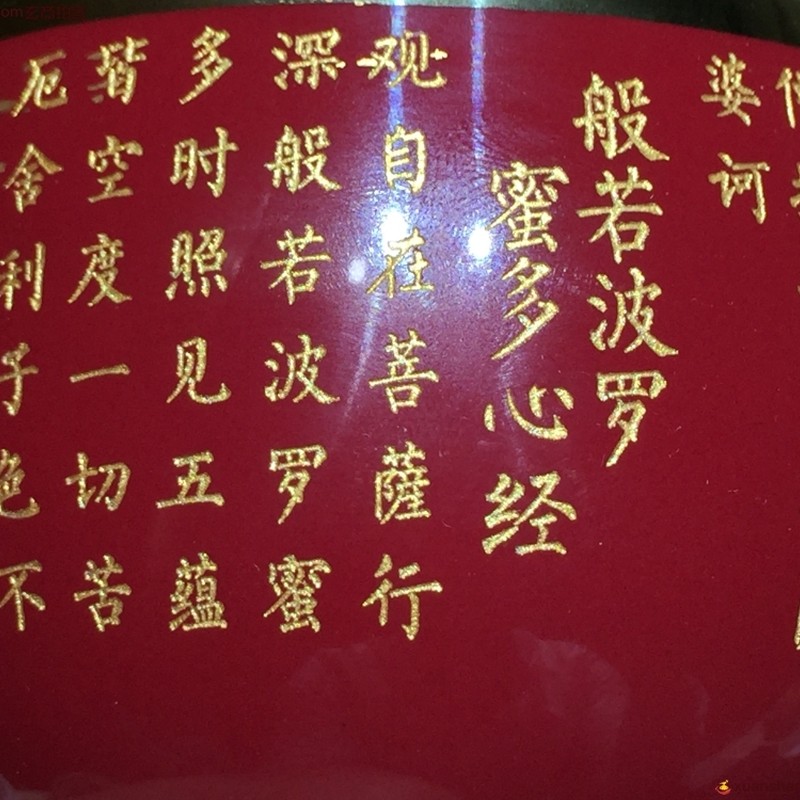 婆诃
般若波罗
蜜多心经
观自在菩萨行
深般若波罗蜜
多时照见五蕴
皆空度一切苦
厄舍利子色不